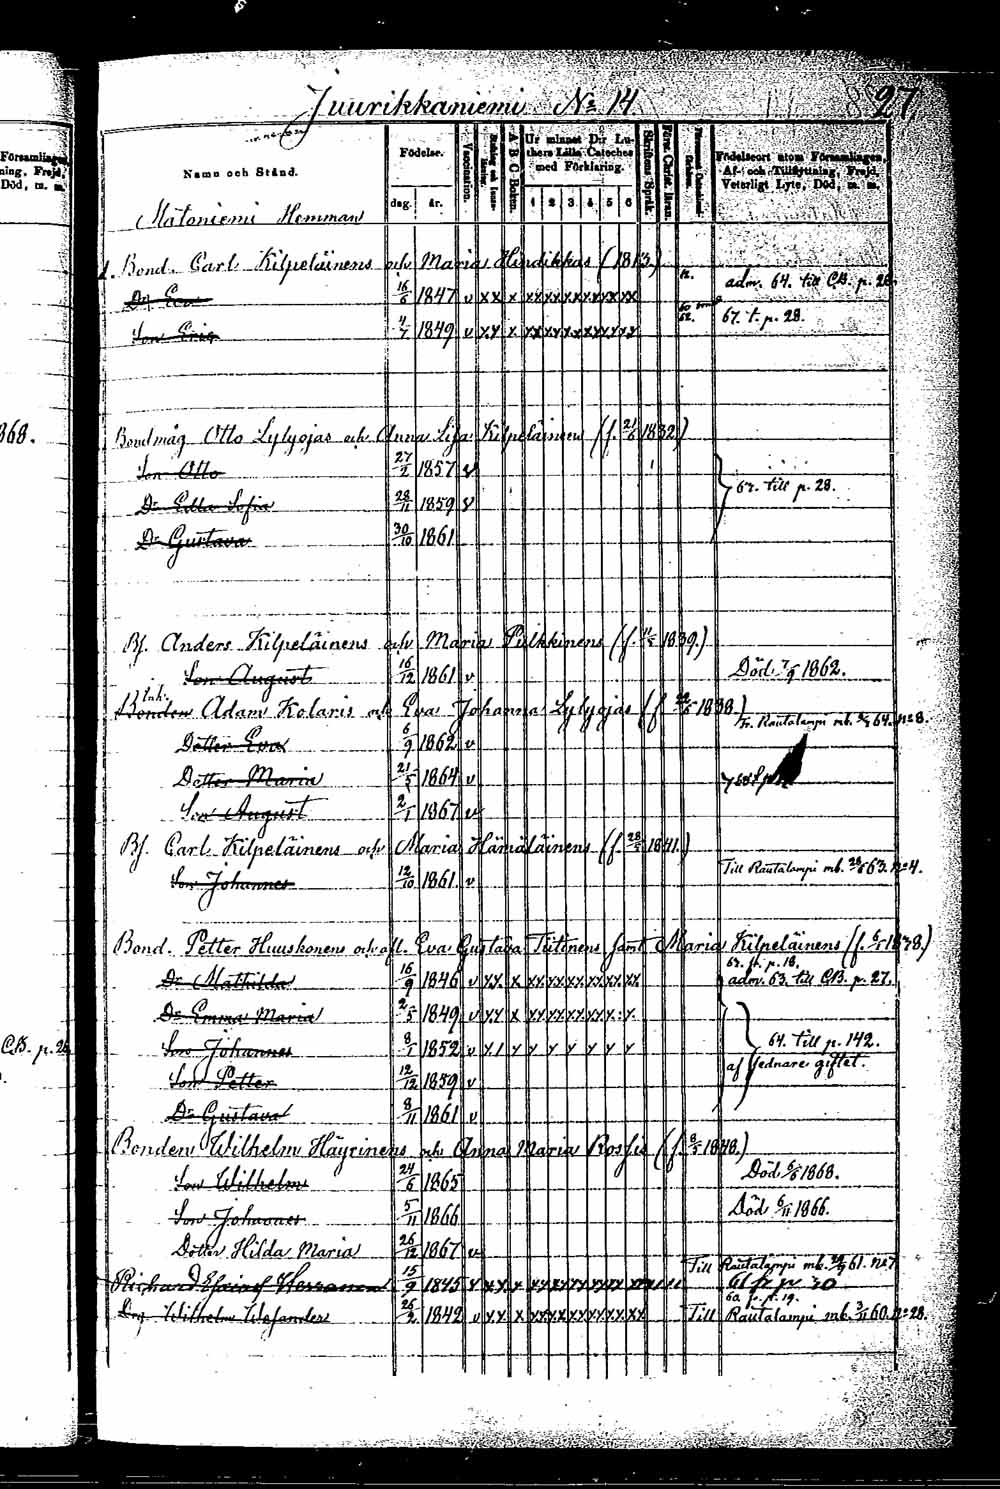 Juurikkaniemi No 14.
27.
Församlingen,
ning, Frejd,
Död, m. m.
Namn och Stånd.
Födelse.
dag.
år.
Vaccination.
A B C-Boken.
Ur minnet D:r Lu-
thers Lilla Cateches
med Förklaring.
1 2 3 4 5 6
Skriftens Språk.
Födelseort utom Församlingen,
Af- och Tillflyttning, Frejd,
Veterligt Lyte, Död, m. m.
Mätöniemi Hemman
1. Bond. Carl Kilpeläinens och Maria Hindikkas (1813)
Dr Eva 16/6 1847 v xx x xx xx xx xx xx xx adm. 64. till CB. p. 26.
Son Eric 4/7 1849 v xx x xx xx xx xx xx xx 67. t. p. 28.
368.
Bondmåg Otto Lylyojas och Anna Lisa Kilpeläinen (f. 21/6 1832)
Son Otto 27/2 1857 v
Dr Edla Sofia 28/11 1859 v 67. till p. 28.
Dr Gustava 30/10 1861
Bf. Anders Kilpeläinens och Maria Pulkkinens (f. 11/5 1839.)
Son August 16/12 1861 v Död 7/9 1862.
Inh.
Bonden Adam Kolaris och Eva Johanna Lylyojas (f. 1838)
Fr. Rautalampi mb. 64. no 8.
Dotter Eva 6/9 1862 v
Dotter Maria 21/5 1864 v
Son August 2/1 1867 v
Bf. Carl Kilpeläinens och Maria Hämäläinens (f. 28/5 1841.)
Son Johannes 12/10 1861 v Till Rautalampi mb. 63. no 4.
Bond. Petter Huuskonens och afl. Eva Gustava Tiitinens samt Maria Kilpeläinens (f. 6/5 1838.)
67. fr. p. 18.
Dr Mathilda 16/9 1846 v xx x xx xx xx xx xx xx adm. 63. till CB. p. 27.
Dr Emma Maria 2/5 1849 v xx x xx xx xx xx x. x.
Son Johannes 8/1 1852 v x 1 x x x x x x x 64. till p. 142.
CB. p. 26
Son Petter 12/12 1859 v af sednare giftet.
Dr Gustava 8/11 1861 v
Bonden Wilhelm Häyrinens och Anna Maria Rossis (f. 8/5 1848.)
Son Wilhelm 24/6 1865 Död 6/8 1868.
Son Johannes 5/11 1866 Död 6/11 1866.
Dotter Hilda Maria 26/12 1867 v
Richard 15/9 1845 v xx x xx xx xx xx xx xx Till Rautalampi mb. 61. no 7
61 fr p 30
62 fr. p. 19.
Drg Wilhelm 26/2 1842 v xx x xx xx xx xx xx xx Till Rautalampi mb. 3/11 60. no 28.